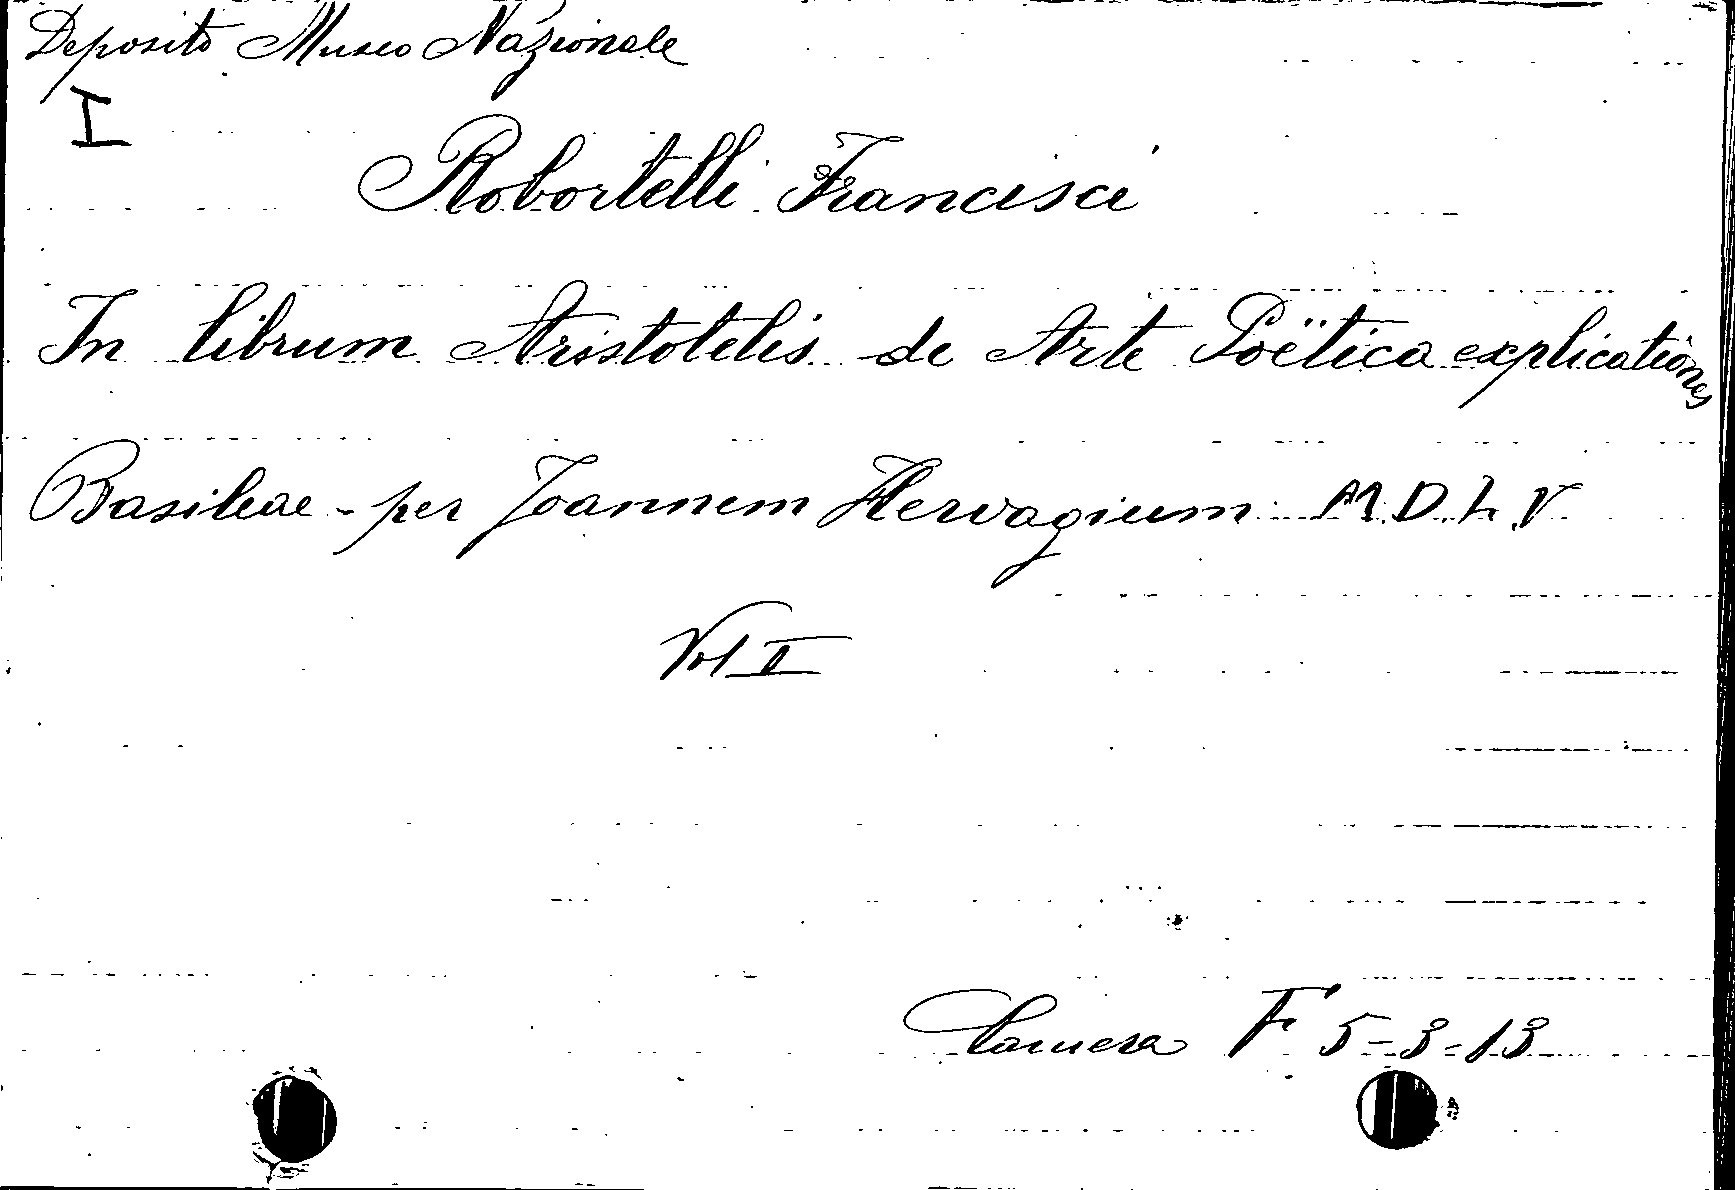 Deposito Museo Nazionale
I
Robortelli Francisci
In librum Aristotelis de Arte Poëtica explicationes
Basileae - per Joannem Hervagium M.D.L.V
Vol I
Camera F 5-3-13